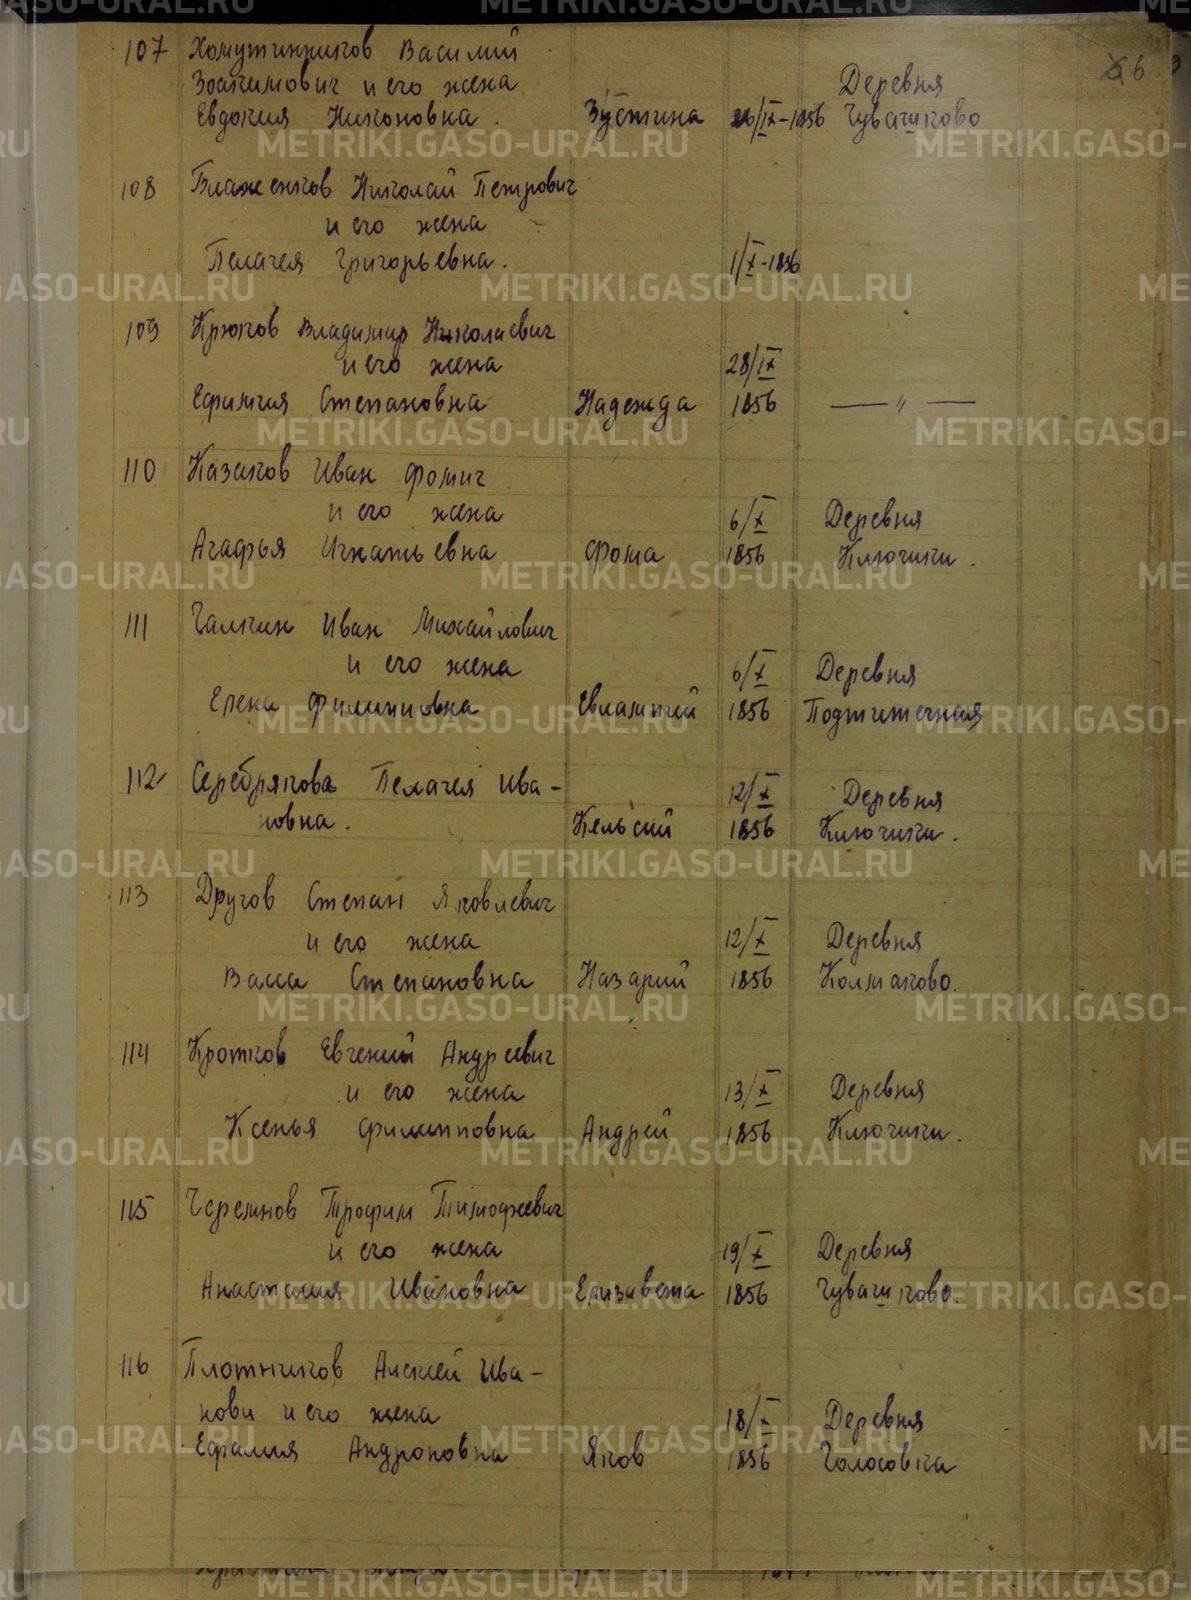 6
107 Хомутинников Василий
Зоатимович и его жена
Деревня
Евдокия Никоновка. Зустина 26/IX-1856 Чувашково
108 Блаженков Николай Петрович
и его жена
Пелагея Григорьевна. 1/X-1856
109 Крюков Владимир Николаевич
и его жена 28/IX
Ефимия Степановна Надежда 1856 — " —
110 Казаков Иван Фомич
и его жена 6/X Деревня
Агафья Игнатьевна Фома 1856 Ключики.
111 Галкин Иван Михайлович
и его жена 6/X Деревня
Елена Филипповна Евлампий 1856
112 Серебрякова Пелагея Ива- 12/X Деревня
новна. Кельсий 1856 Ключики.
113 Другов Степан Яковлевич
и его жена 12/X Деревня
Васса Степановна Назарий 1856 Колмаково.
114 Кротков Евгений Андреевич
и его жена 13/X Деревня
Ксенья Филипповна Андрей 1856 Ключики.
115 Черемнов Трофим Тимофеевич
и его жена 19/X Деревня
Анастасия Ивановна Елизавета 1856 Чувашково.
116 Плотников Алексей Ива-
нови и его жена 18/X Деревня
Ефалия Андроновна Яков 1856 Голосовка
METRIKI.GASO-URAL.RU